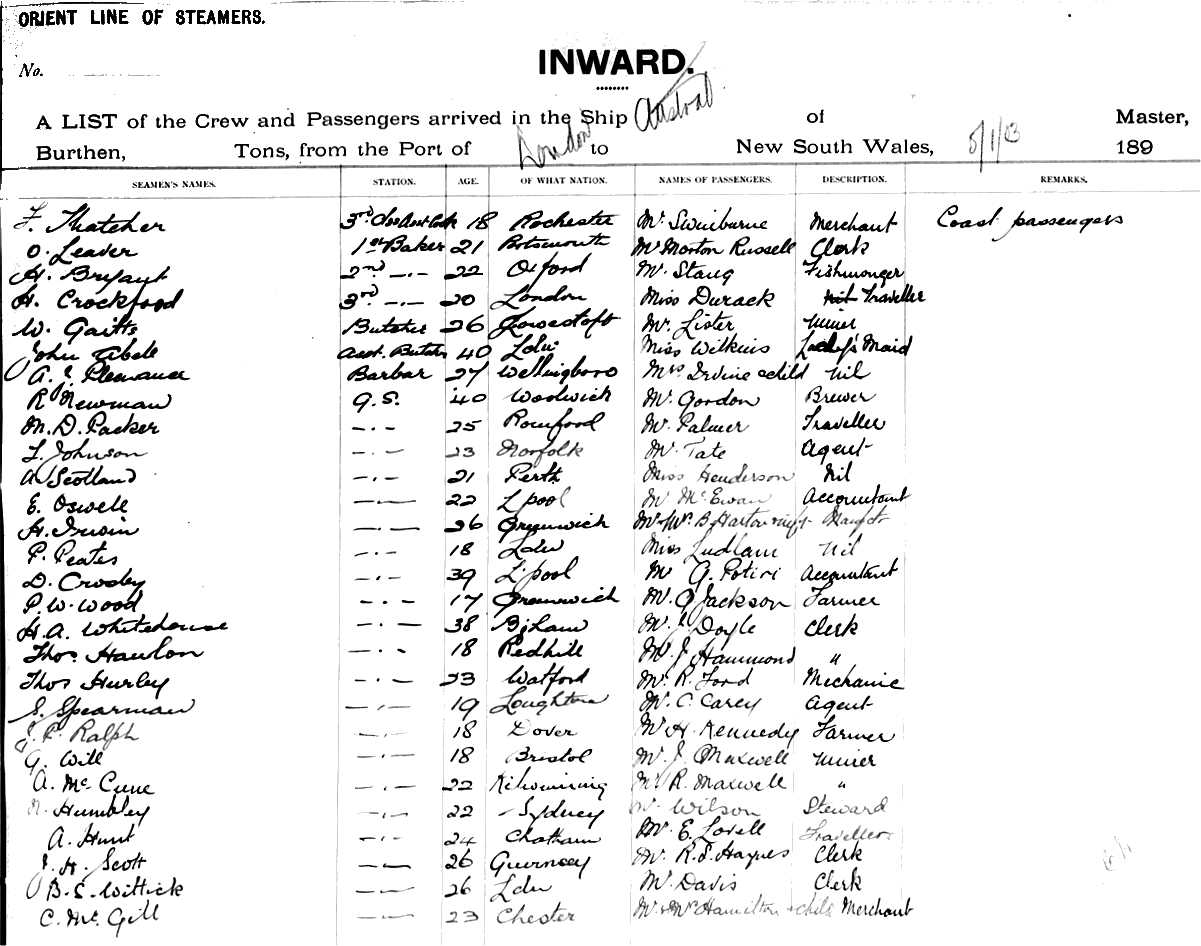 ORIENT LINE OF STEAMERS.
No.
INWARD.
A LIST of the Crew and Passengers arrived in the Ship Austral of Master,
Burthen, Tons, from the Port of London to New South Wales, 5/1/03 189
SEAMEN'S NAMES. STATION. AGE. OF WHAT NATION. NAMES OF PASSENGERS. DESCRIPTION. REMARKS.
F. Thatcher 3rd Cook 18 Rochester Mr Swinburne Merchant Coast passengers
O. Leaver 1st Baker 21 Portsmouth Mr Morton Russell Clerk
H. Bryant 2nd -.- 22 Oxford Mr Fishmonger
H. Crockford 3rd -.- 20 London Miss Durack Traveller
W. Gaitts Butcher 26 Lowestoft Mr Lister Miner
John Abell Asst. Butcher 40 Ldn Miss Wilkins Lady's Maid
A. J. Pleasance Barbar 27 Wellingboro Mrs Irvine & child Nil
R Newman G.S. 40 Woolwich Mr Gordon Brewer
M. D. Packer -.- 25 Romford Mr Palmer Traveller
L. Johnson -.- 23 Norfolk Mr Tate Agent
A Scotland -.- 21 Perth Miss Henderson Nil
E. Oswell -.- 22 L'pool Mr McEwan Accountant
H. Irwin -.- 26 Greenwich Mr & Mrs B.
P. Peates -.- 18 Ldn Miss Ludlam Nil
D. Crosby -.- 39 L'pool Mr G. Potiri Accountant
P. W. Wood -.- 17 Greenwich Mr Jackson Farmer
H. A. Whitehouse -.- 38 Mr J Doyle Clerk
Thos Hanlon -.- 18 Redhill Mr J Hammond "
Thos Hurley -.- 23 Watford Mr R. Ford Mechanic
S. Spearman -.- 19 Loughton Mr C. Carey Agent
J. P. Ralph -.- 18 Dover Mr H. Kennedy Farmer
G. Will -.- 18 Bristol Mr J. Maxwell Miner
A. McCune -.- 22 Kilwinning Mr R. Maxwell "
Humbley -.- 22 Sydney Mr Wilson Steward
A. Hunt -.- 24 Chatham Mr E. Lovell Traveller
J. H. Scott -.- 26 Guernsey Mr R. S. Haynes Clerk
B. S. Wittick -.- 26 Ldn Mr Davis Clerk
C. McGill -.- 23 Chester Mr & Mrs Hamilton & child Merchant